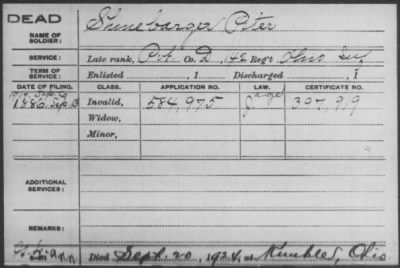 DEAD
NAME OF SOLDIER: Shinebarger Peter
SERVICE: Late rank, Pvt. Co. D, 142 Reg't Ohio Inf
TERM OF SERVICE: Enlisted , 1 Discharged , 1
DATE OF FILING. CLASS. APPLICATION NO. LAW. CERTIFICATE NO.
1886, Sep. 13 Invalid, 584,975 397,919
Widow,
Minor,
ADDITIONAL SERVICES:
REMARKS:
Died Sept. 20, 1924, at Ohio